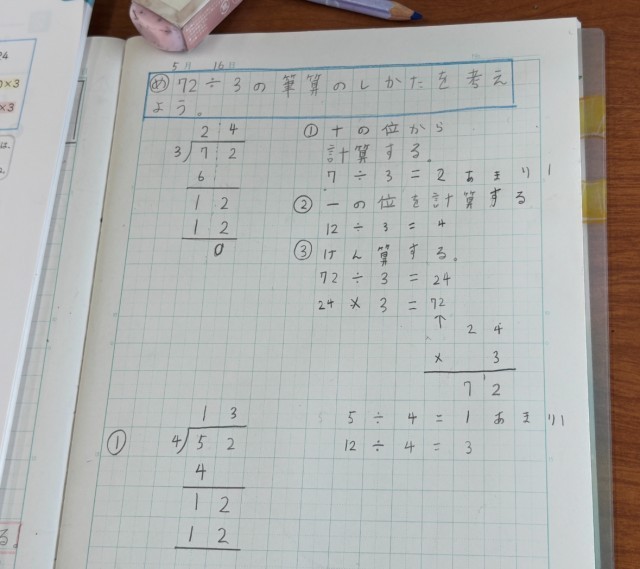 5月 16日
め 72÷3の筆算のしかたを考え
よう。
24
3)72
6
12
12
0
① 十の位から
計算する。
7÷3=2あまり1
② 一の位を計算する
12÷3=4
③ けん算する。
72÷3=24
24×3=72
↑ 24
× 3
72
13
① 4)52
4
12
12
5÷4=1あまり1
12÷4=3
24
×3
は、
る。